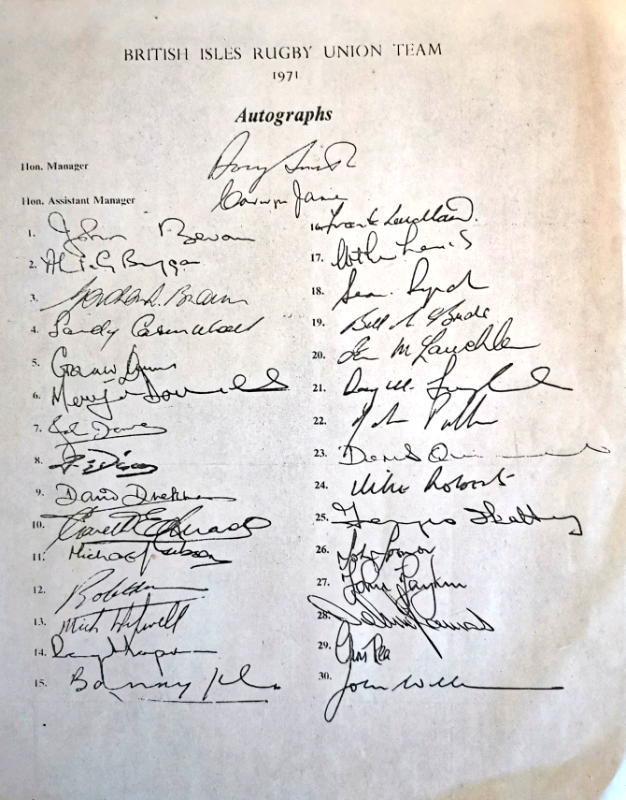 BRITISH ISLES RUGBY UNION TEAM
1971
Autographs
Hon. Manager Doug Smith
Hon. Assistant Manager Carwyn James
1. John Bevan
2. 
3. Gordon L. Brown
4. Sandy Carmichael
5. 
6. 
7. John Dawes
8. 
9. David Duckham
10. Gareth Edwards
11. Michael Gibson
12. 
13. Mick Hipwell
14. 
15. Barry John
16. Frank Laidlaw.
17. Arthur Lewis
18. Sean Lynch
19. Bill McBride
20. Ian McLauchlan
21. 
22. John Pullin
23. Derek Quinnell
24. Mike Roberts
25. Fergus Slattery
26. 
27. John Taylor
28. 
29. Chris Rea
30. John Williams